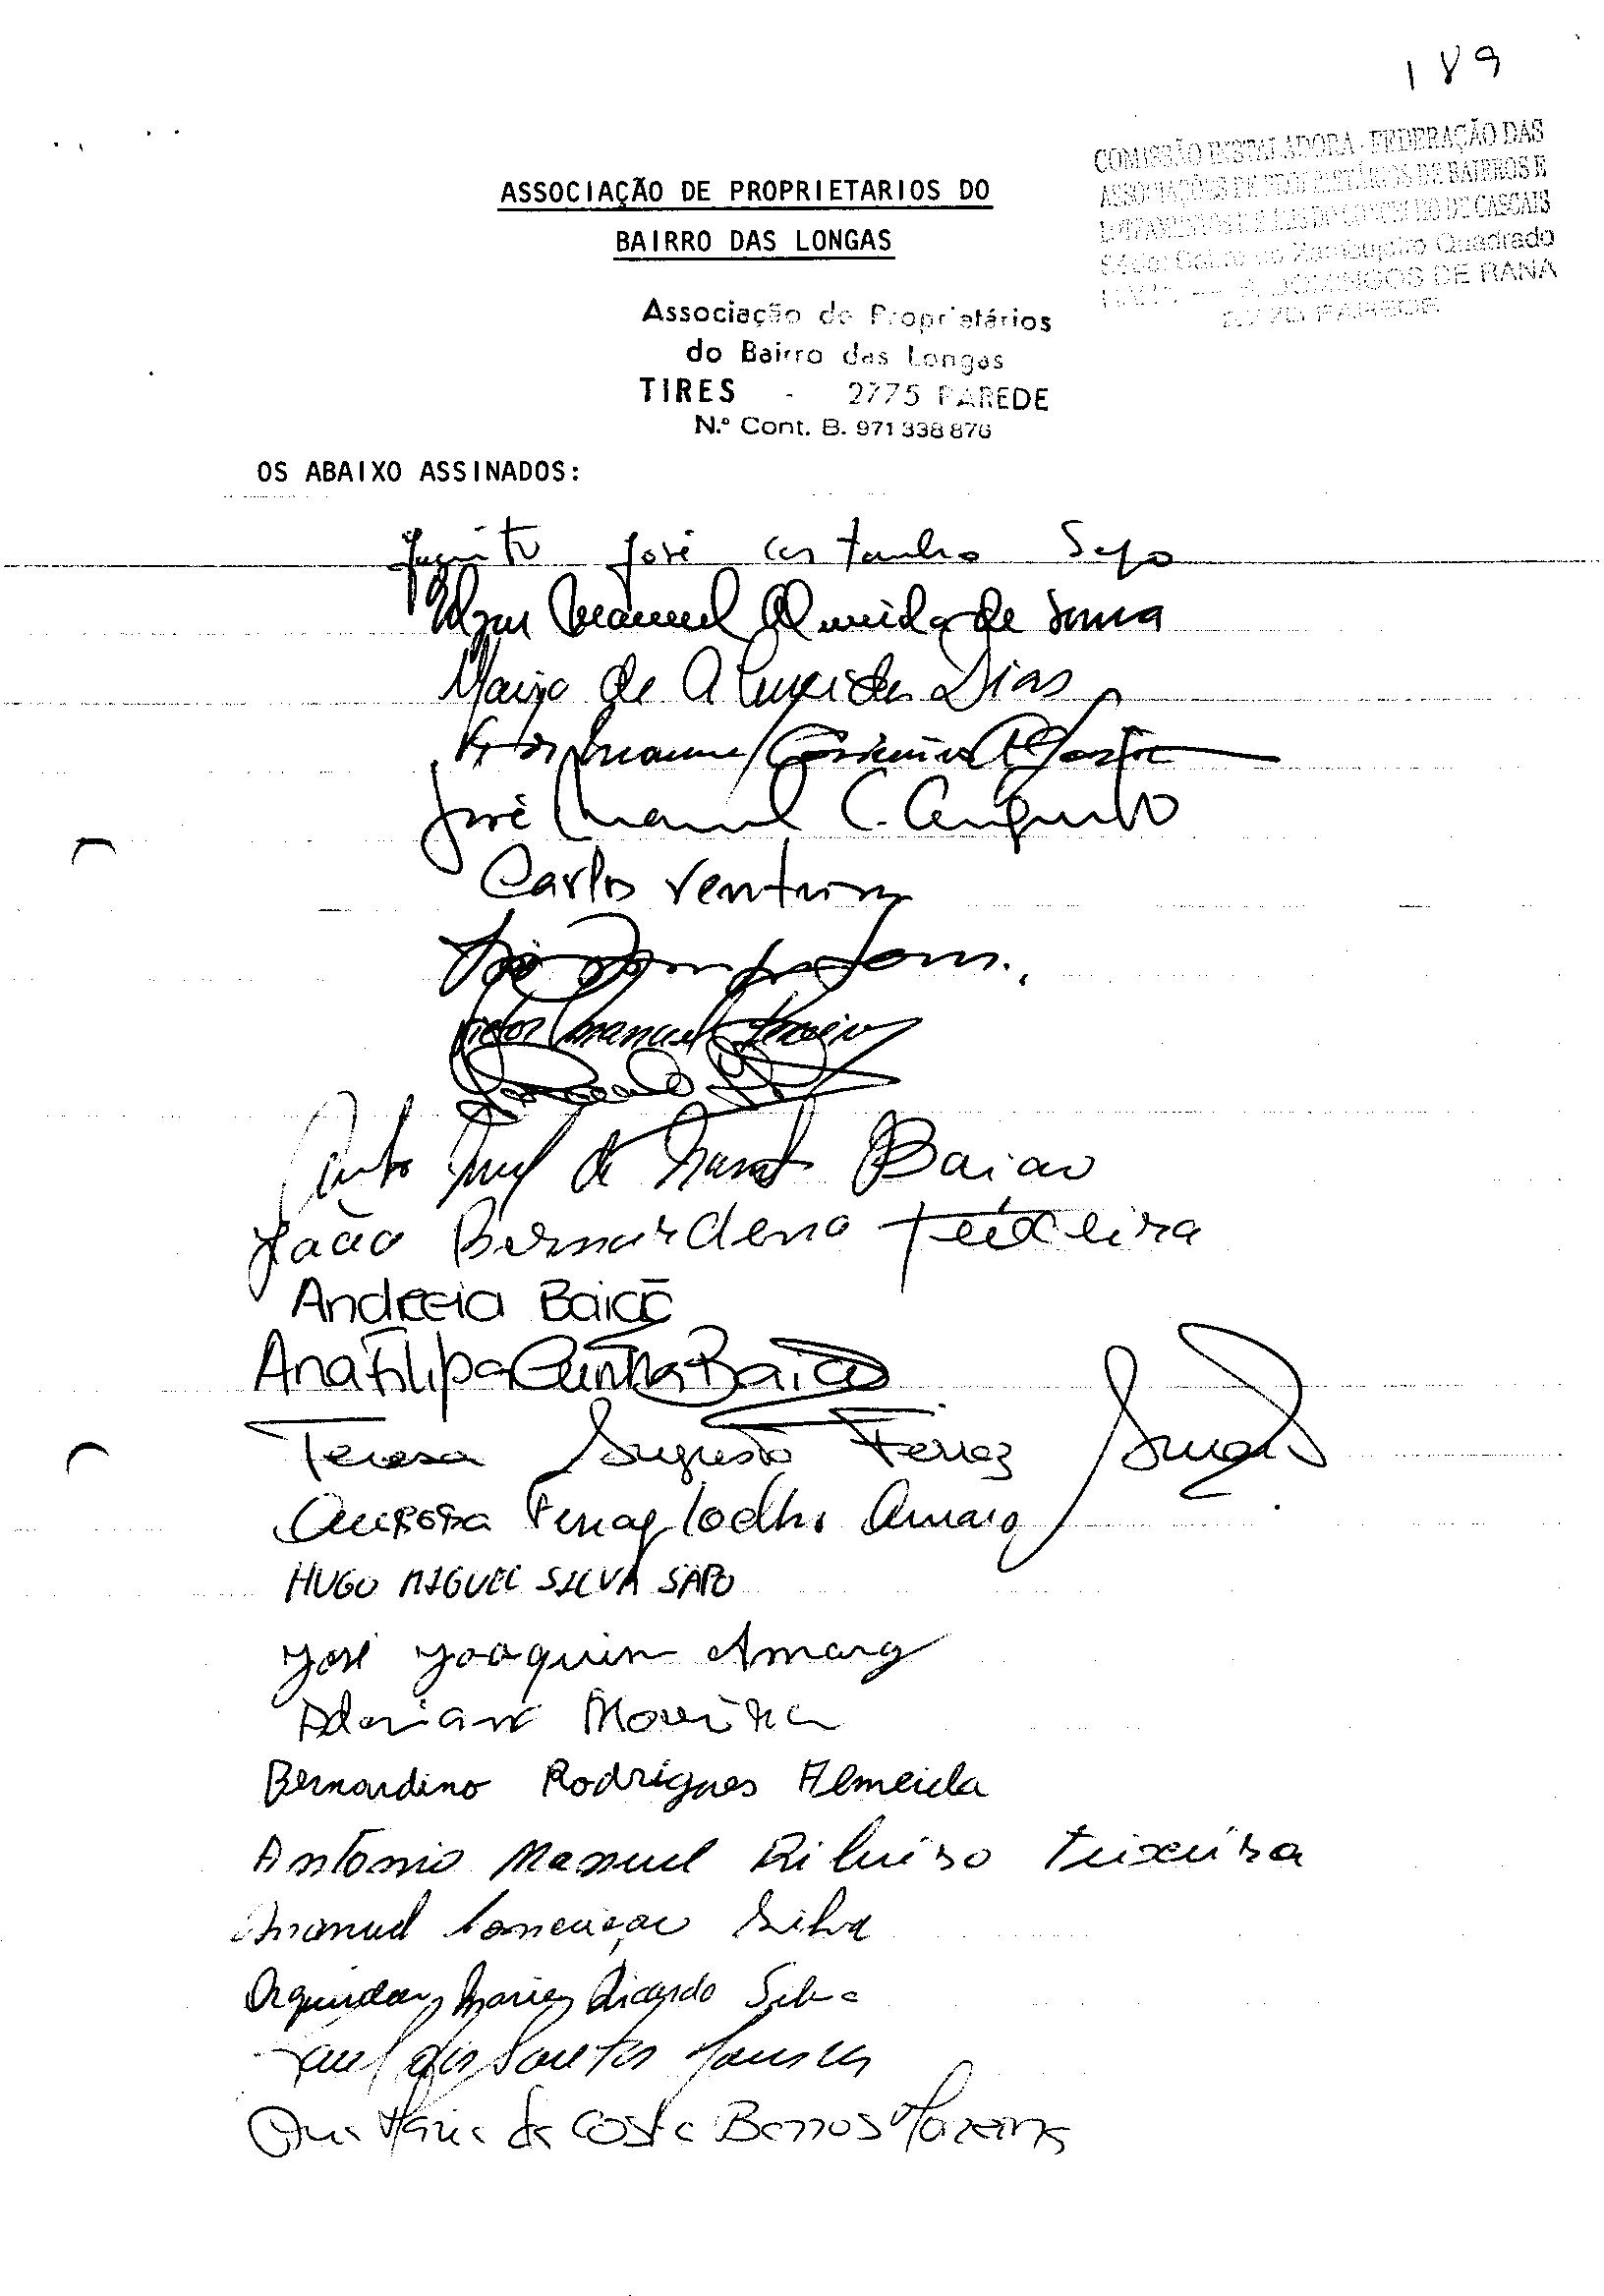 189
COMISSÃO INSTALADORA - FEDERAÇÃO DAS
ASSOCIAÇÕES DE PROPRIETÁRIOS DE BAIRROS E
DO CONCELHO DE CASCAIS
Sede: Bairro do Zambujeiro Quadrado
S. DOMINGOS DE RANA
PAREDE
ASSOCIAÇÃO DE PROPRIETARIOS DO
BAIRRO DAS LONGAS
Associação de Proprietários
do Bairro das Longas
TIRES - 2775 PAREDE
N.º Cont. B. 971 338 876
OS ABAIXO ASSINADOS:
José Castanho Sapo
Manuel Almeida de Sousa
de Almeida Dias
Manuel
José Manuel C.
Carlos Ventura
Victor Manuel
de Baiao
João Bernardeno Teixeira
Andreia Baião
Ana Filipa Cunha Baião
Teresa Augusta Ferraz Amaro
Aurora Ferraz Coelho Amaro
HUGO MIGUEL SILVA SAPO
José Joaquim Amaro
Adriano Moreira
Bernardino Rodrigues Almeida
António Manuel Ribeiro Teixeira
Manuel Conceição Silva
Maria Ricardo Silva
dos Santos
Ana Maria da Costa Barros Moreira